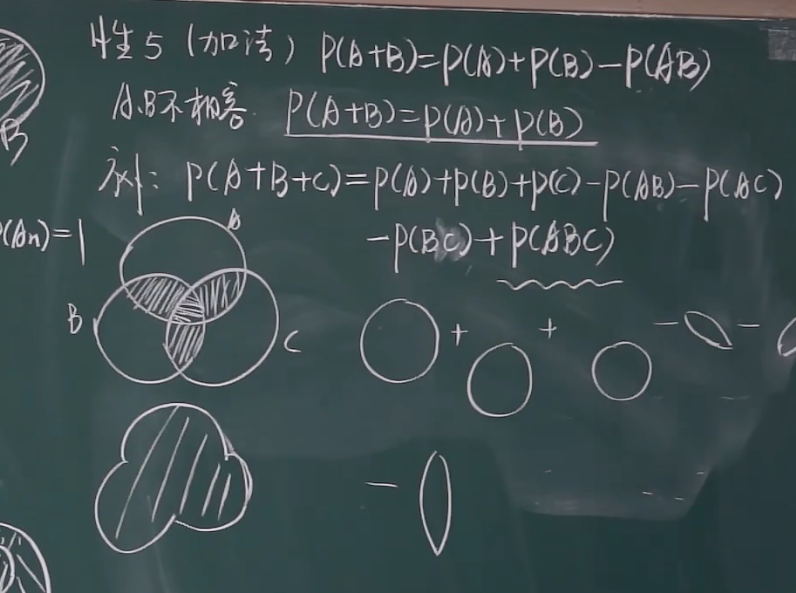 性5（加法）P(A+B)=P(A)+P(B)-P(AB)
A.B不相容. P(A+B)=P(A)+P(B)
例：P(A+B+C)=P(A)+P(B)+P(C)-P(AB)-P(AC)
-P(BC)+P(ABC)
P(An)=1
A
B
C
B
+ + - -
-